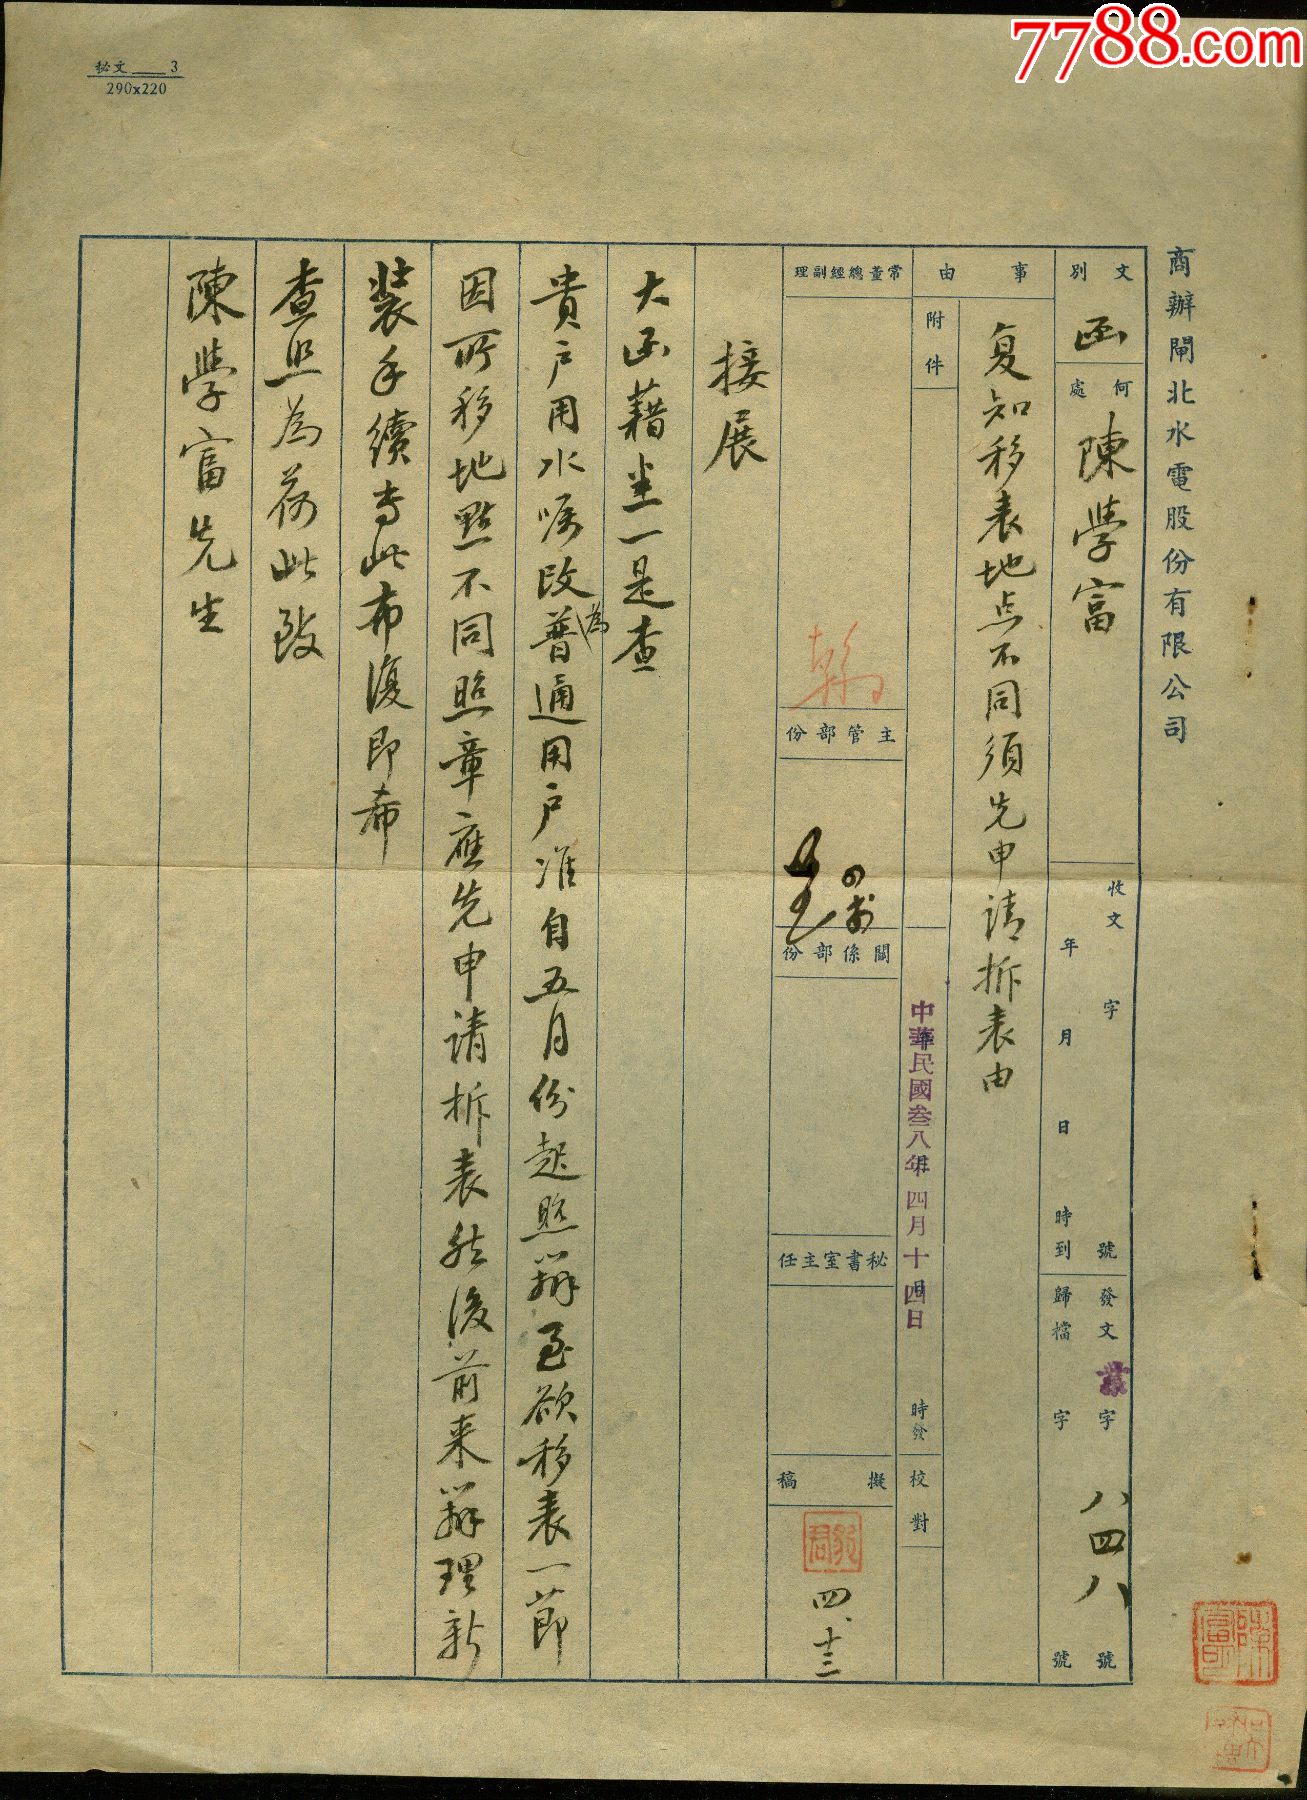 7788.com
秘文 ___ 3
290x220
商辦閘北水電股份有限公司
文別
函
何處
陳學富
收文 字 號
年 月 日 時到
發文 字 八四八 號
歸檔 字 號
事由
复知移表地点不同须先申请拆表由
附件
中華民國叁八年四月十四日
時發
校對
常董總經副理
主管部份
關係部份
秘書室主任
擬稿
四、十三
接展
大函藉悉一是查
貴戶用水嘱改為普通用户准自五月份起照辦至欲移表一節
因所移地點不同照章應先申请拆表然後前来辦理新
裝手續專此布復即希
查照為荷此致
陳學富先生